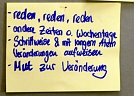 - reden, reden, reden
- andere Zeiten o. Wochentage
- Schriftweise & mit langem Atem
Veränderungen aufweisen
- Mut zur Veränderung